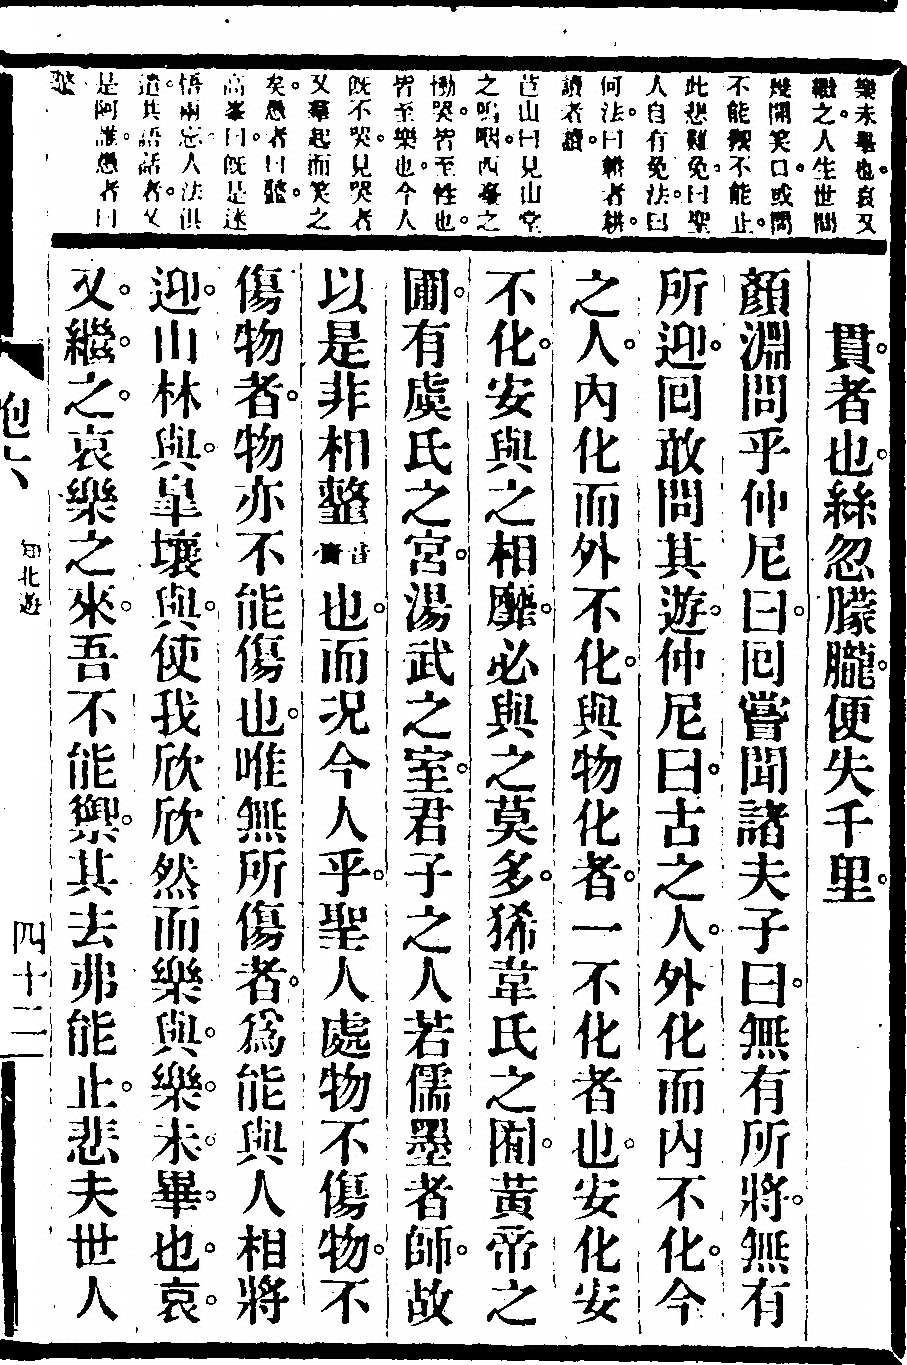 樂未畢也。哀又
繼之。人生世間
幾開笑口。或問
不能禦不能止。
此悲難免。曰聖
人自有免法。曰
何法。曰耕者耕。
讀者讀。
芑山曰見山堂
之嗚咽。西臺之
慟哭。皆至性也。
皆至樂也。今人
既不哭。見哭者
又羣起而笑之
矣。愚者曰
高峯曰。既是迷
悟兩忘。人法俱
遣。其語話者。又
是阿誰。愚者曰
貫。者也。絲忽朦朧。便失千里。
顏淵問乎仲尼曰。回嘗聞諸夫子曰。無有所將。無有
所迎。回敢問其遊。仲尼曰。古之人。外化而內不化。今
之人。內化而外不化。與物化者。一不化者也。安化安
不化。安與之相靡。必與之莫多。狶韋氏之囿。黃帝之
圃。有虞氏之宮。湯武之室。君子之人若儒墨者師。故
以是非相䪠音齎也。而況今人乎。聖人處物不傷物。不
傷物者。物亦不能傷也。唯無所傷者。爲能與人相將
迎。山林與。皐壤與。使我欣欣然而樂與。樂。未畢。也。哀。
又。繼。之。哀樂之來。吾不能禦。其去弗能止。悲夫世人
炮六
知北遊
四十二